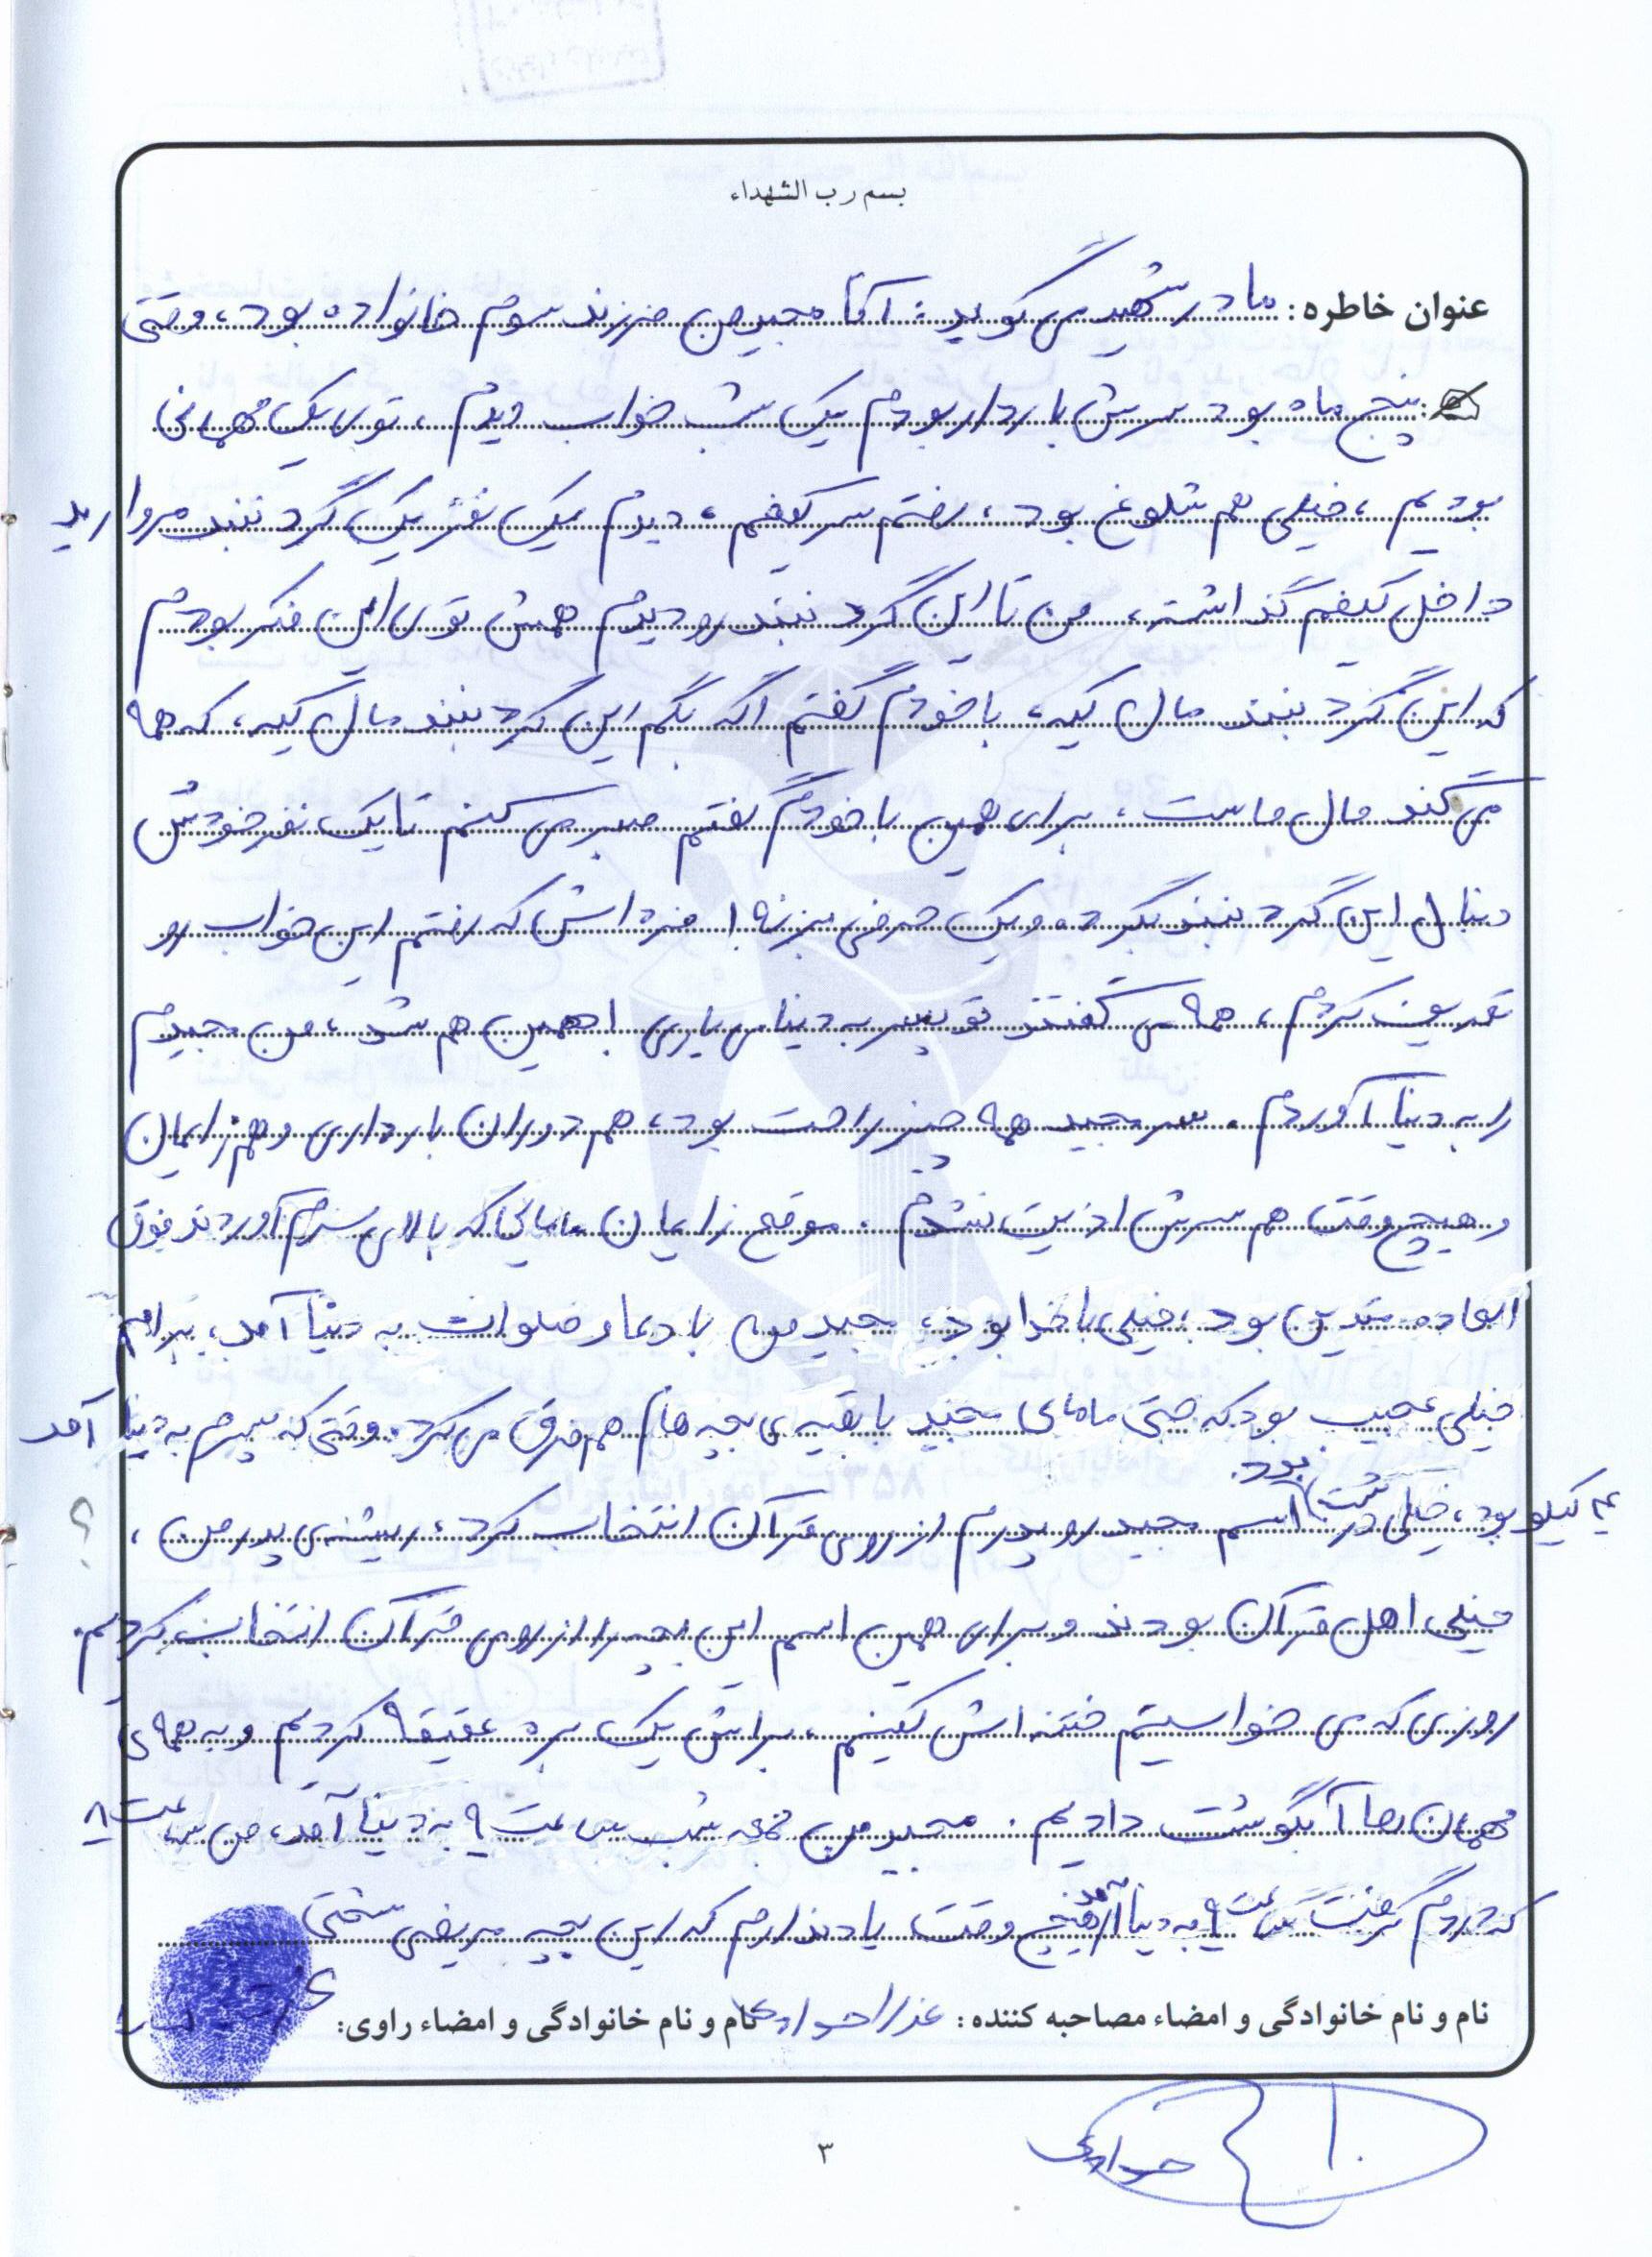 بسم رب الشهداء
عنوان خاطره: مادر شهید می گوید: آقا مجید من فرزند سوم خانواده بود، وقتی
پنج ماه بود سرش باردار بودم یک شب خواب دیدم، توی یک مهمانی
بودیم، خیلی هم شلوغ بود، رفتم سر کیفم، دیدم یک نفر یک گردنبند مروارید
داخل کیفم گذاشته، من تا این گردنبند رو دیدم همش توی این فکر بودم
که این گردنبند مال کیه، با خودم گفتم اگه بگم این گردنبند مال کیه، که همه
می گند مال ماست، برای همین با خودم گفتم صبر می کنم تا یک نفر خودش
دنبال این گردنبند بگرده و یک حرفی بزنه! فرداش که رفتم این خواب رو
تعریف کردم، همه می گفتند تو پسر به دنیا می یاری! همین هم شد، من مجیدم
را به دنیا آوردم. سر مجید همه چیز راحت بود، هم دوران بارداری و هم زایمان
و هیچ وقت هم سرش اذیت نشدم. موقع زایمان مامایی که بالای سرم آوردند فوق
العاده متدین بود، خیلی باخدا بود، مجید من با دعا و صلوات به دنیا آمد، برام
خیلی عجیب بود که حتی مامای مجید با بقیه ی بچه هام هم فرق می کرد. وقتی که پسرم به دنیا آمد
۴ کیلو بود، خیلی درشت بود. اسم مجید رو پدرم از روی قرآن انتخاب کرد، ریشه ی پدر من، ؟
خیلی اهل قرآن بودند و برای همین اسم این بچه را از روی قرآن انتخاب کردیم.
روزی که می خواستیم ختنه اش کنیم، برایش یک بره عقیقه کردیم و به همه ی
مهمان ها آبگوشت دادیم. مجید من جمعه شب ساعت ۹ به دنیا آمد، من ساعت ۸
که دردم گرفت ساعت ۹ به دنیا آمد هیچ وقت یاد ندارم که این بچه مریضی سختی
نام و نام خانوادگی و امضاء مصاحبه کننده: عذرا حواری نام و نام خانوادگی و امضاء راوی:
حواری
۳